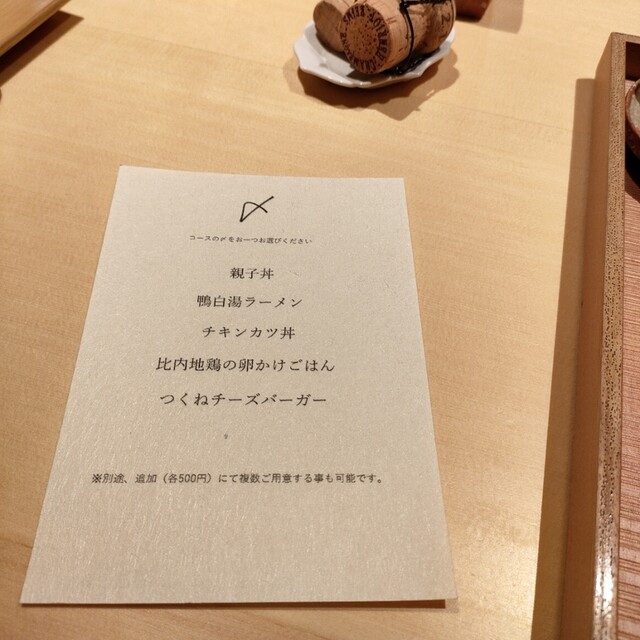 〆
コースの〆をお一つお選びください
親子丼
鴨白湯ラーメン
チキンカツ丼
比内地鶏の卵かけごはん
つくねチーズバーガー
※別途、追加（各500円）にて複数ご用意する事も可能です。